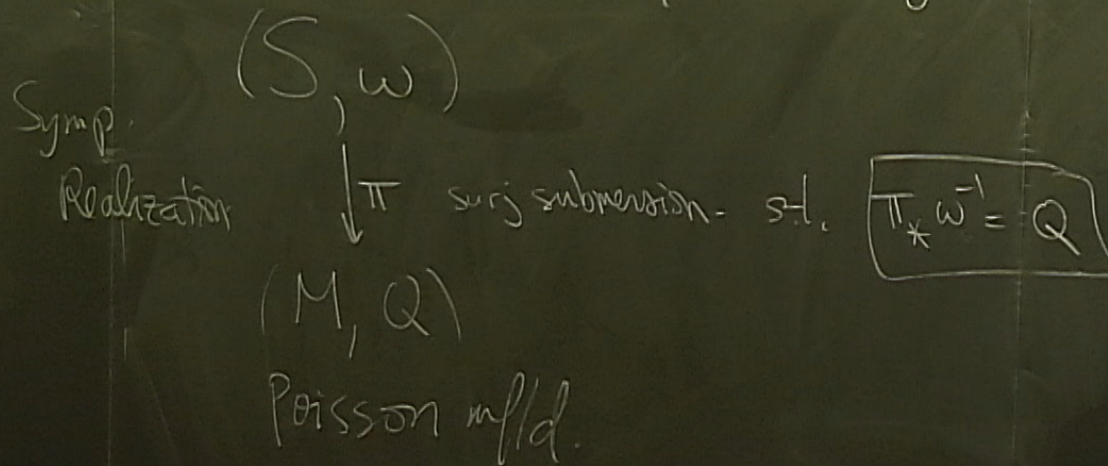 (S, ω)
Symp.
Realization
↓ π surj submersion. s.t. π_* ω^{-1} = Q
(M, Q)
Poisson mf/d.